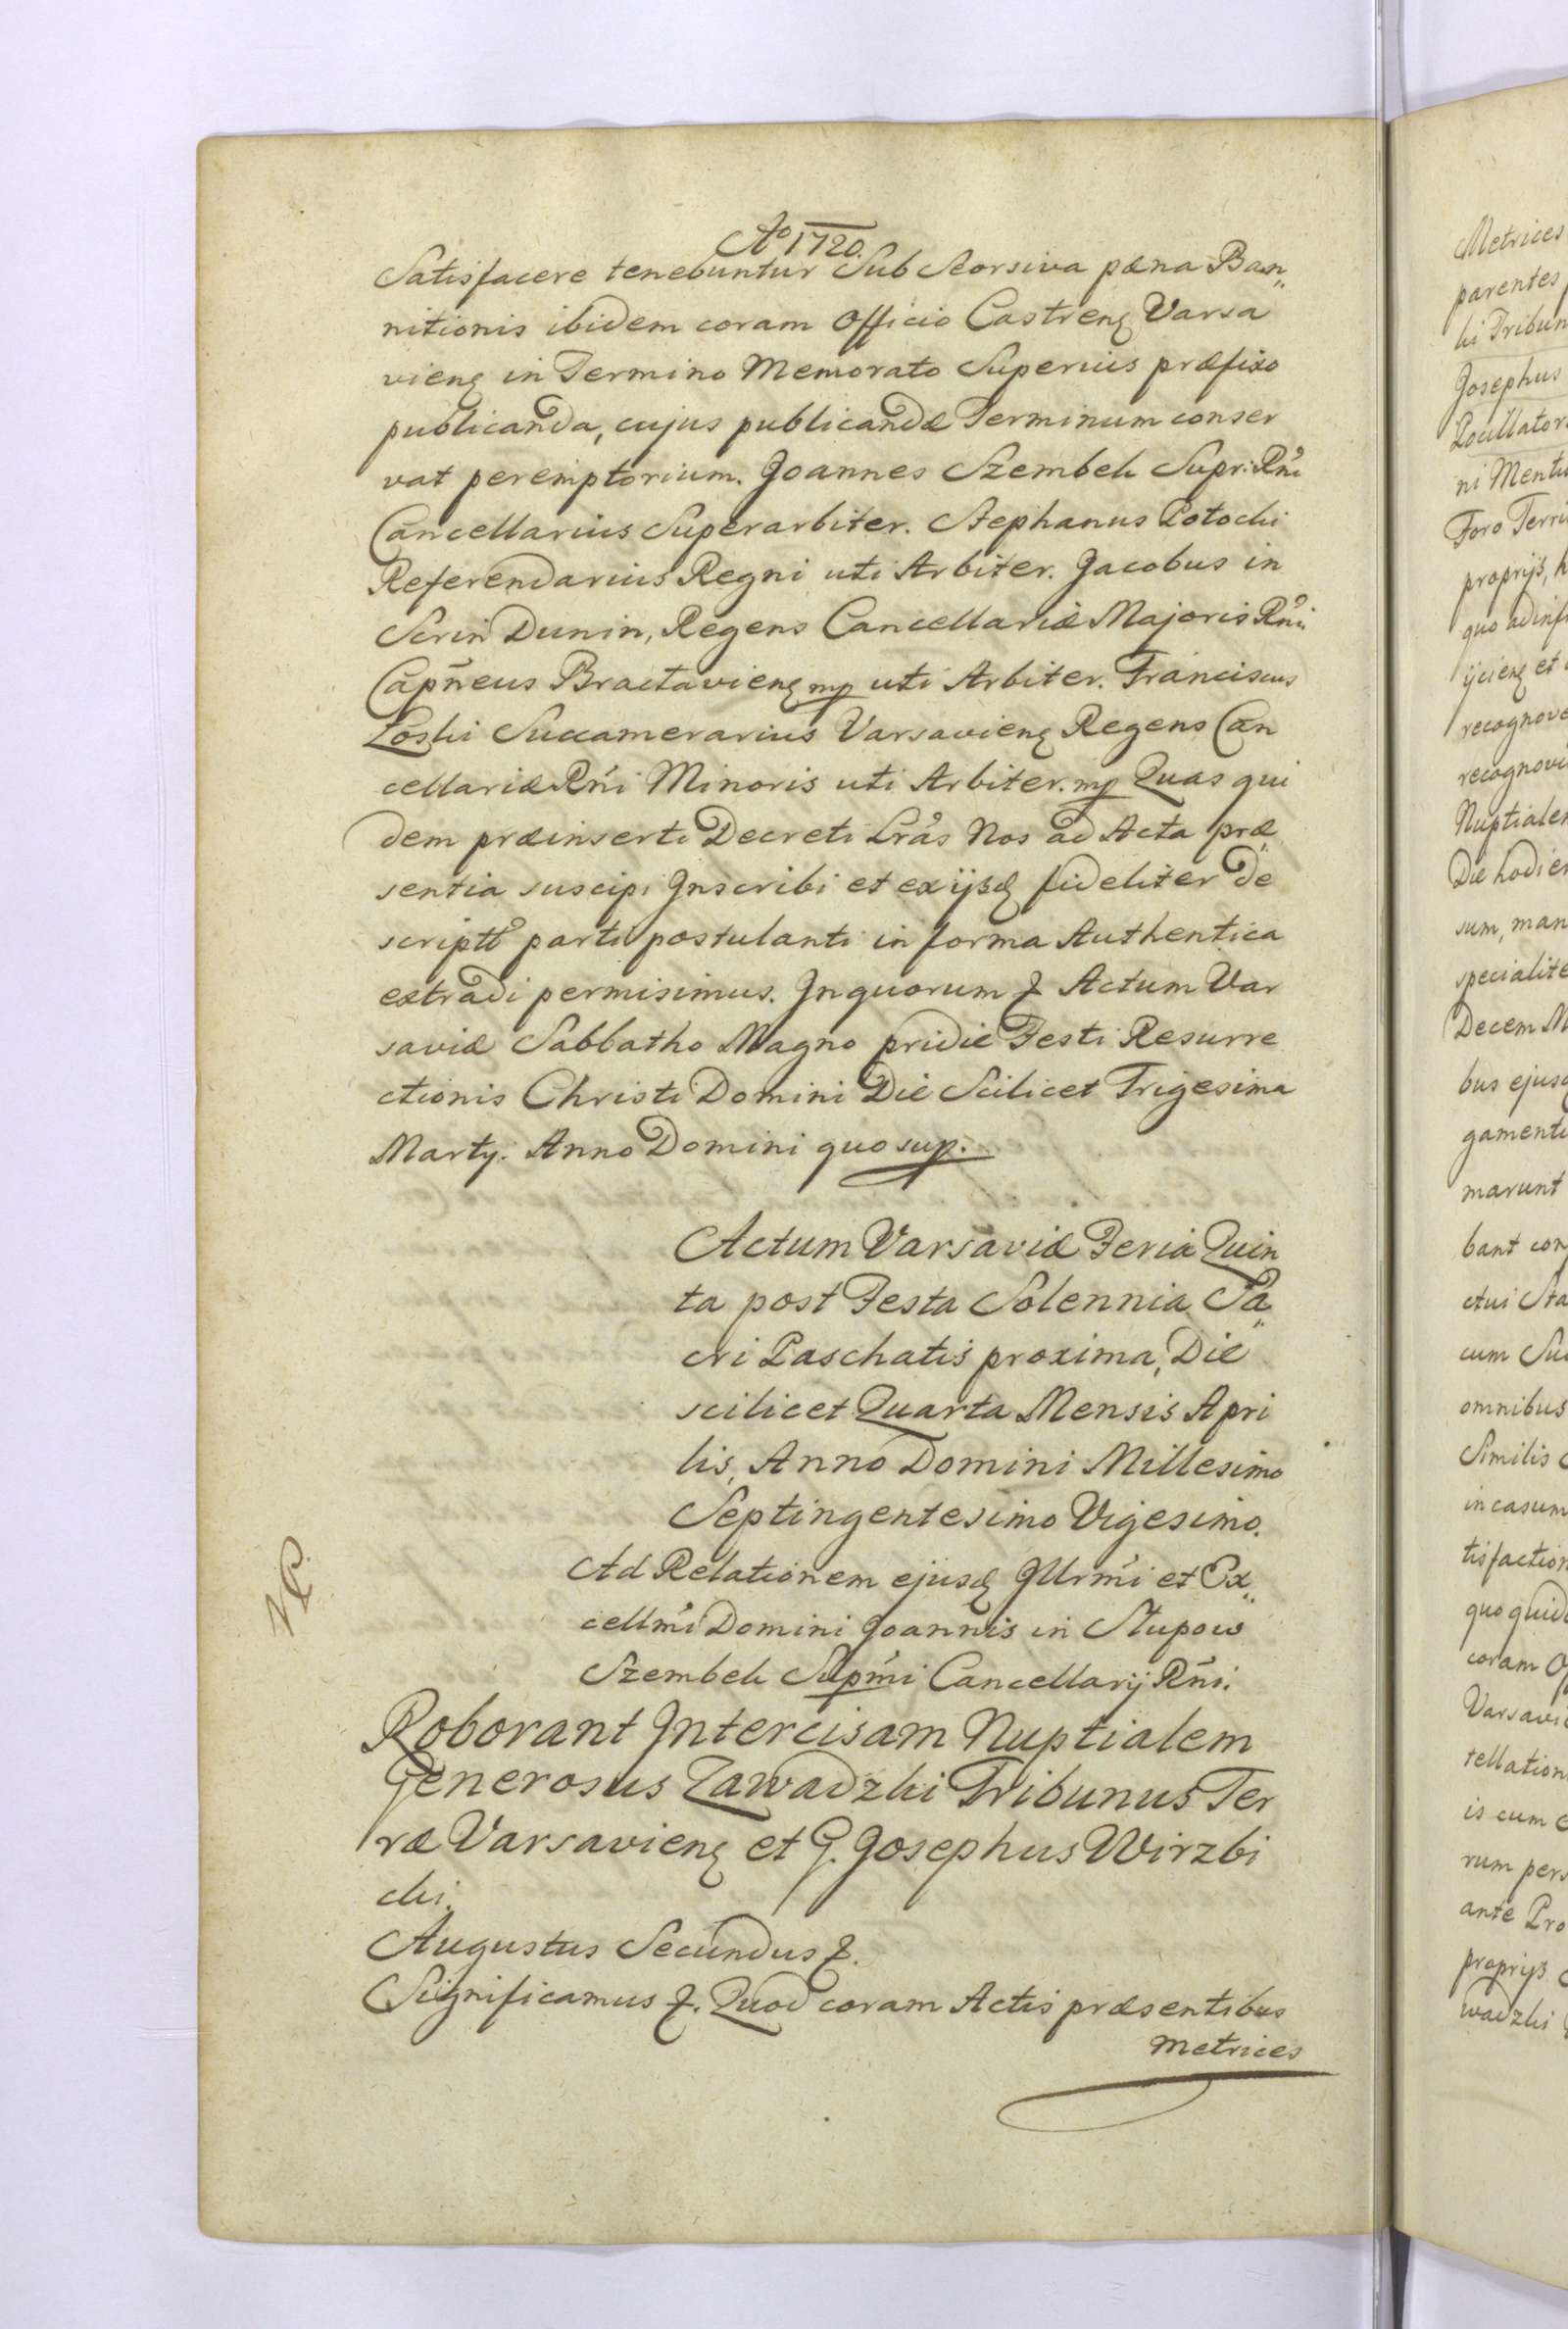 Aº 1720.
Satisfacere tenebuntur Sub Seorsiva pœna Ban„
nitionis ibidem coram Officio Castrenȝ Varsa
vienȝ in Termino Memorato Superius præfixo
publicanda, cujus publicandæ Terminum conser
vat peremptorium. Joannes Szembek Supr: Rňi
Cancellarius Superarbiter. Stephanus Potocki
Referendarius Regni uti Arbiter. Jacobus in
Scrin Dunin, Regens Cancellariæ Majoris Rňi
Capñeus Bractavienȝ mp uti Arbiter. Franciscus
Loski Succamerarius Varsavienȝ Regens Can
cellariæ Rňi Minoris uti Arbiter. mp Quas qui
dem præinserti Decreti Lrås Nos ad Acta præ„
sentia suscipi Jnscribi et ex ijsdȝ fideliter de
scriptt̊ parti postulanti in forma Authentica
extradi permisimus. Jn quorum ꝛ Actum Var
saviæ Sabbatho Magno pridie Festi Resurre
ctionis Christi Domini Die Scilicet Trigesima
Martij. Anno Domini quo sup.
Actum Varsaviæ Feria Quin
ta post Festa Solennia Sa„
cri Paschatis proxima, Die
scilicet Quarta Mensis Apri
lis, Anno Domini Millesimo
Septingentesimo Vigesimo.
Ad Relationem ejusdȝ Jllrm̃i et Ex„
cellm̃i Domini Joannis in Slupow
Szembek Supm̃i Cancellarij Rňi.
Roborant Jntercisam Nuptialem
Generosus Zawadzki Tribunus Ter
ræ Varsavienȝ et G. Josephus Wirzbi
cki.
Augustus Secundus ꝛ.
Significamus ꝛ. Quod coram Actis præsentibus
Metrices
Metrices
parentes
ki Tribun
Josephus
Pocillator
ni Mentu
Foro Terri
proprijs, h
quo ad inf
ijcienȝ et
recognove
recognovi
Nuptialem
Die hodier
sum, man
specialite
Decem M
bus ejusd
gamenti
marunt
bant con
ctui Sta
cum Su
omnibus
Similis
in casum
tisfaction
quo quid
coram Of
Varsavi
tellation
is cum
rum pers
ante Pro
proprijs
wadzki